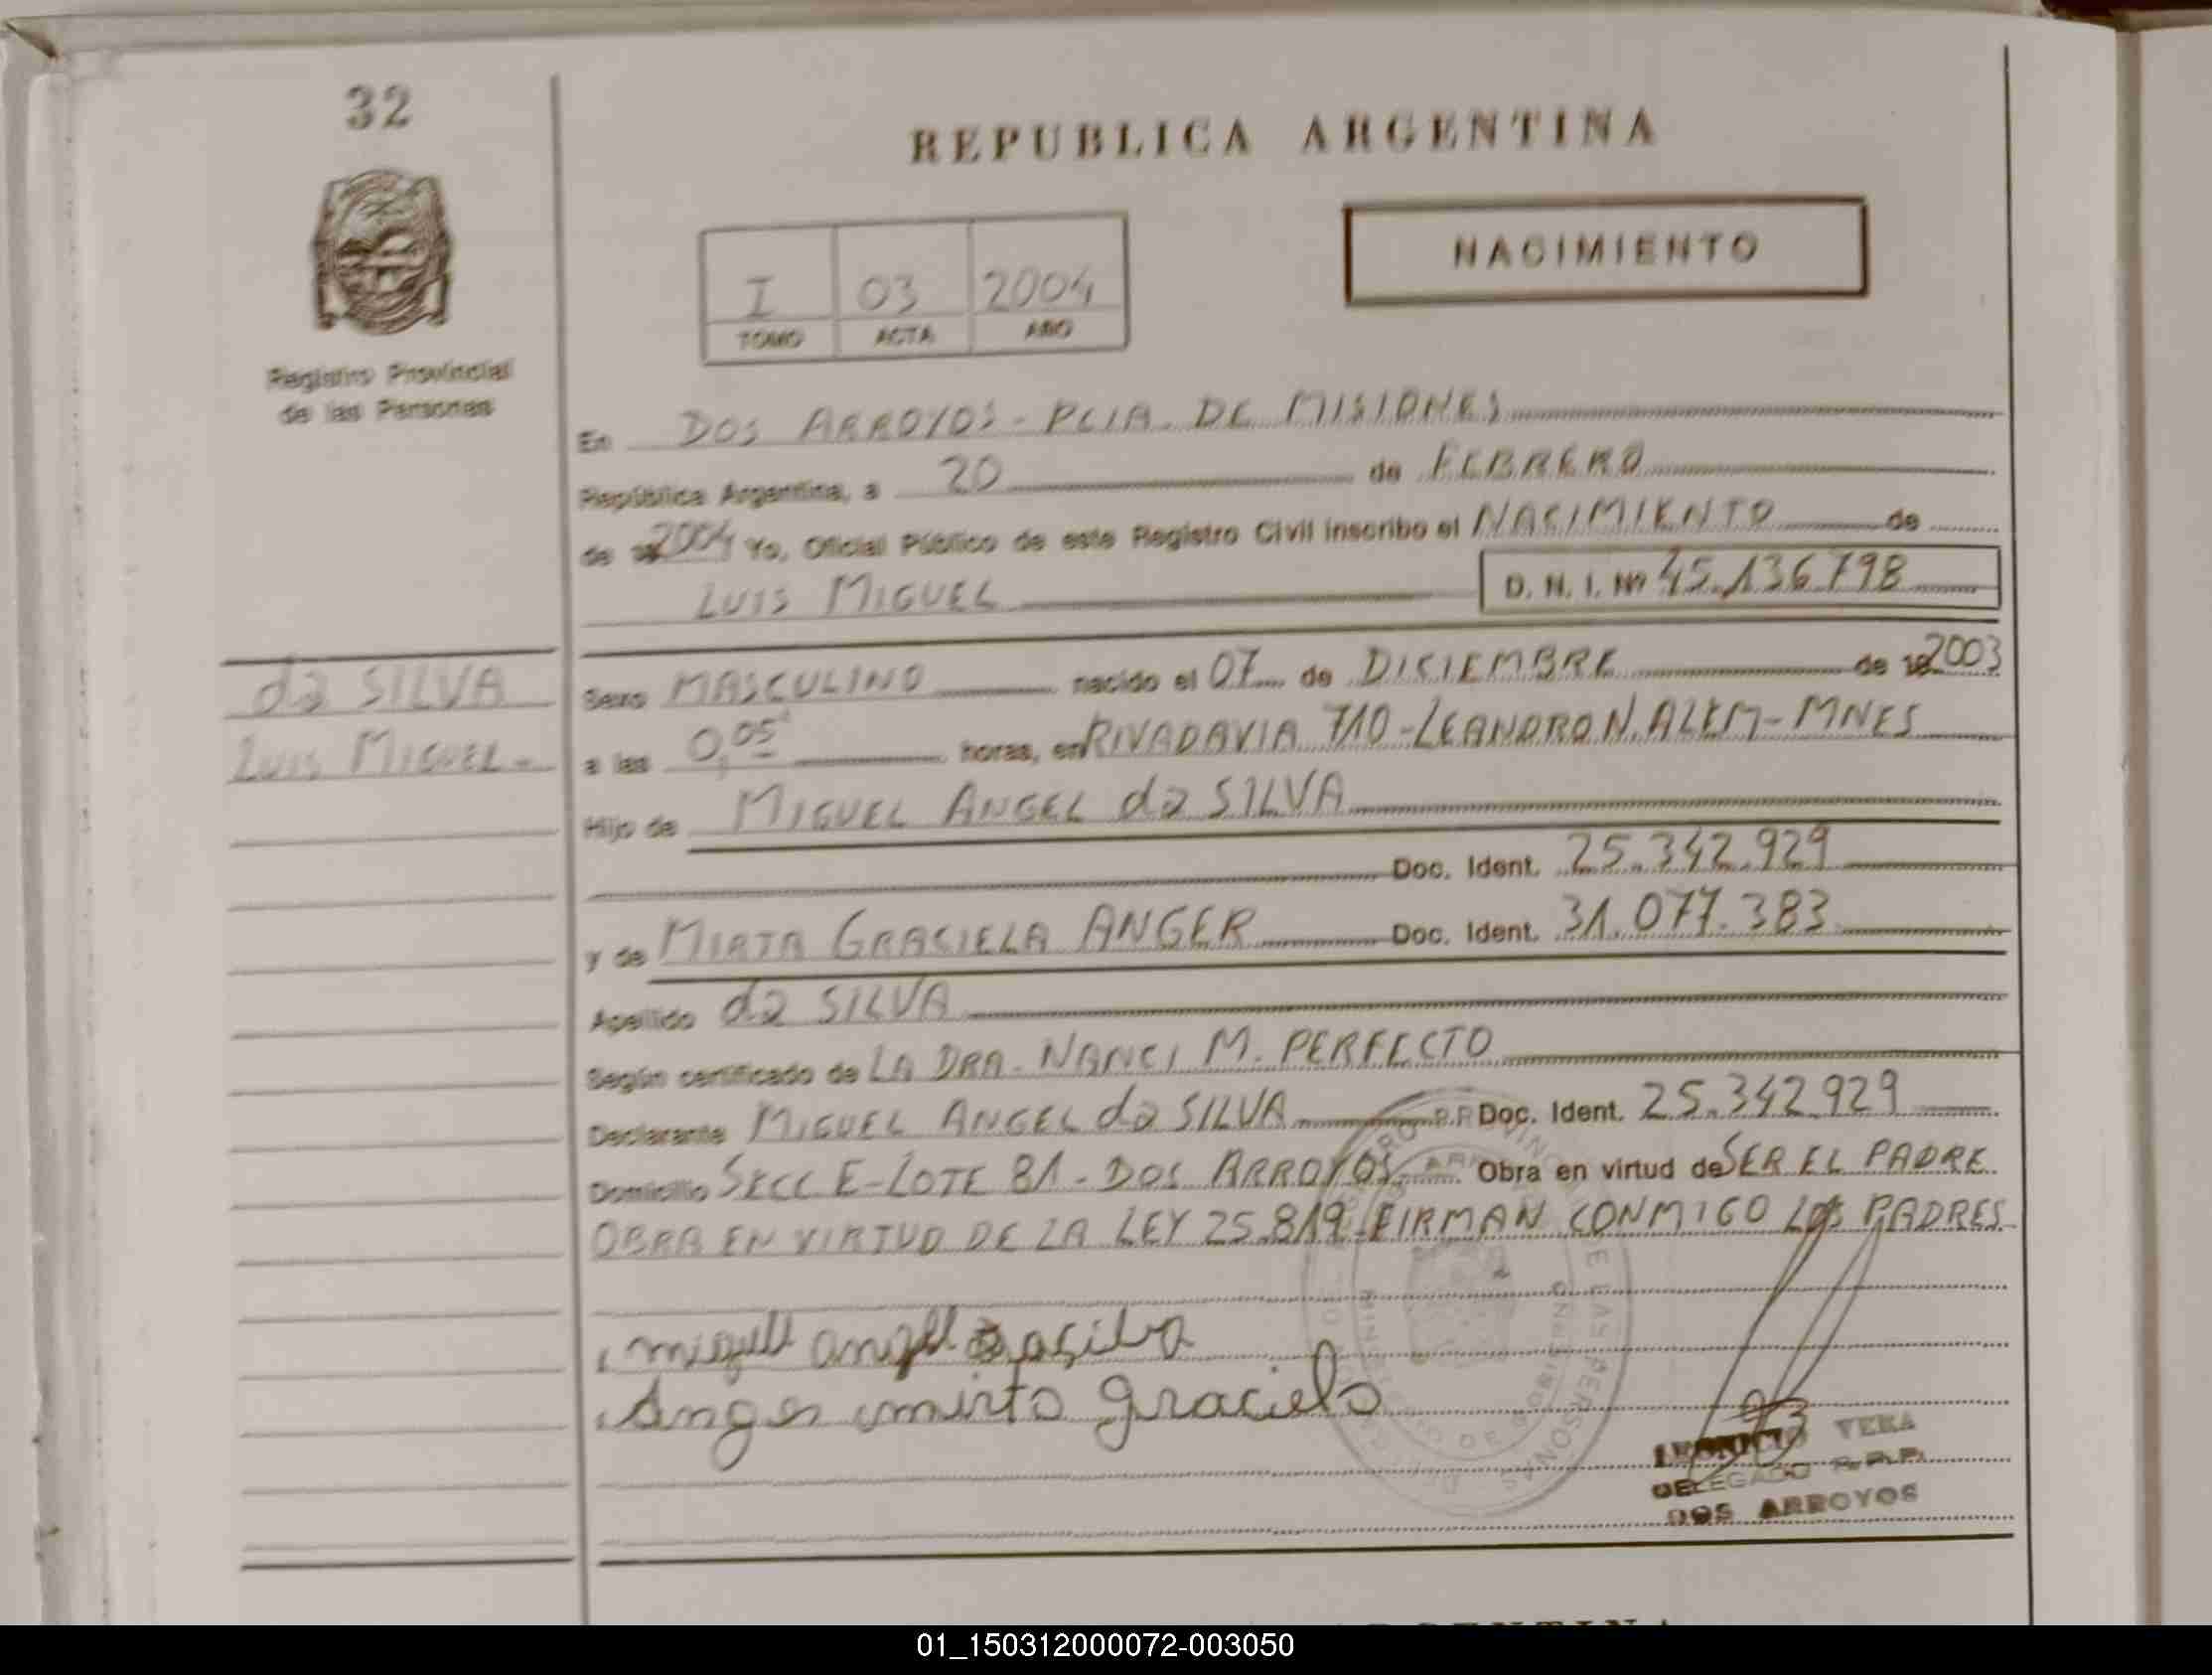 32
REPUBLICA ARGENTINA
NACIMIENTO
I 03 2004
TOMO ACTA AÑO
Registro Provincial
de las Personas
En DOS ARROYOS - PCIA. DE MISIONES
República Argentina, a 20 de FEBRERO
de 19 2004 Yo, Oficial Público de este Registro Civil inscribo el NACIMIENTO de
LUIS MIGUEL D. N. I. Nº 45.136.798
da SILVA
LUIS MIGUEL -
Sexo MASCULINO nacido el 07 de DICIEMBRE de 19 2003
a las 0,05 horas, en RIVADAVIA 710 - LEANDRO N. ALEM - MNES
Hijo de MIGUEL ANGEL da SILVA
Doc. Ident. 25.342.929
y de MIRTA GRACIELA ANGER Doc. Ident. 31.077.383
Apellido da SILVA
Según certificado de LA DRA. NANCI M. PERFECTO
Declarante MIGUEL ANGEL da SILVA Doc. Ident. 25.342.929
Domicilio SECC E - LOTE 81 - DOS ARROYOS Obra en virtud de SER EL PADRE
OBRA EN VIRTUD DE LA LEY 25.819. FIRMAN CONMIGO LOS PADRES
miguel angel dasilva
Anger mirta graciela
LEONICIO VERA
DELEGADO R.P.P.
DOS ARROYOS
01_150312000072-003050